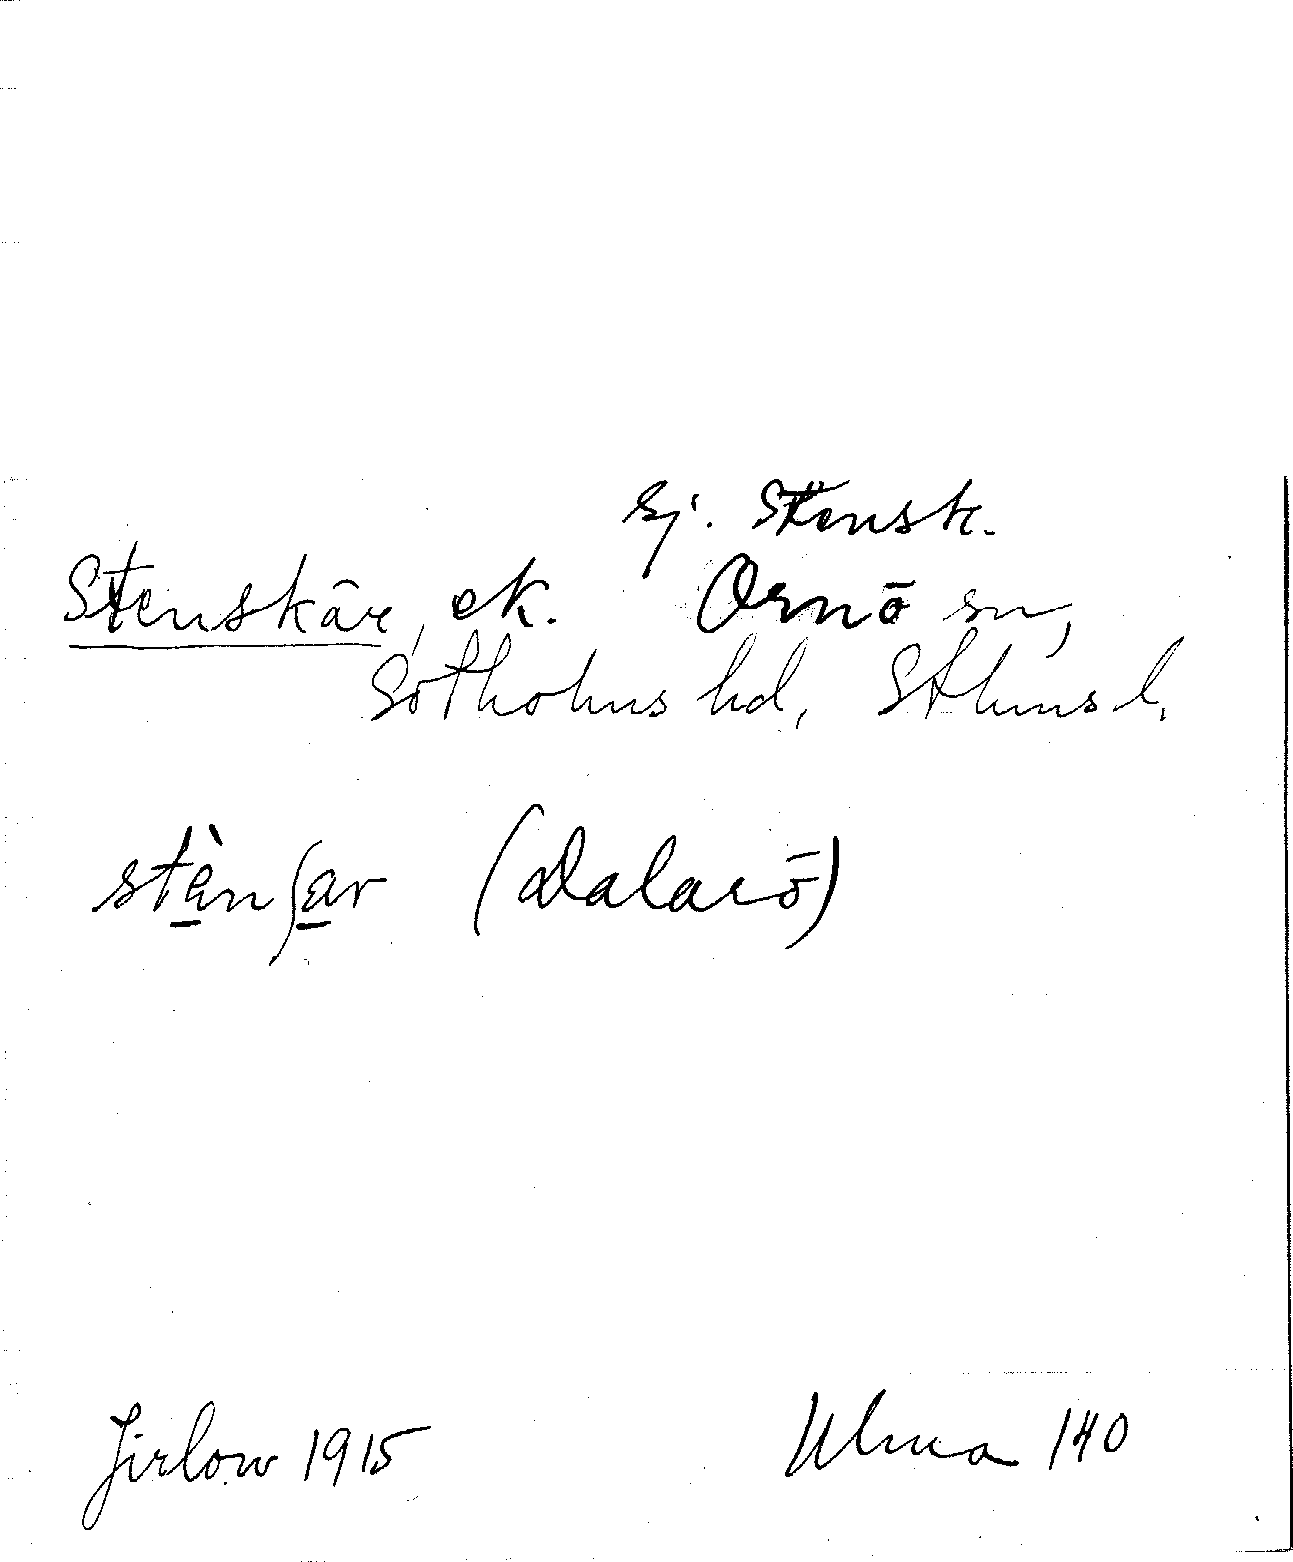 Ej. Stensk.
Stenskär, ek. Ornö sn,
Sotholms hd, Sthms l.
stèn∫ar (Dalarö)
Jirlow 1915 Ulma 140